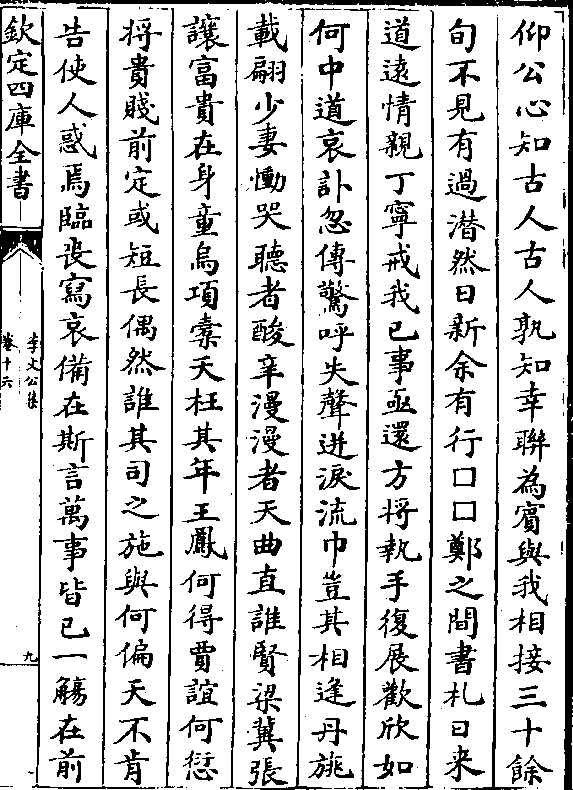 仰公心知古人古人孰知幸聯為賓與我相接三十餘
旬不見有過潜然日新余有行囗囗鄭之間書札日来
道遠情親丁寧戒我已事亟還方將執手復展歡欣如
何中道哀訃忽傳驚呼失聲迸淚流巾豈其相逢丹旐
載翩少妻慟哭聽者酸辛漫漫者天曲直誰賢梁冀張
讓富貴在身童烏項橐夭枉其年王鳳何得賈誼何愆
將貴賤前定或短長偶然誰其司之施與何偏天不肯
告使人惑焉臨喪寫哀備在斯言萬事皆已一觴在前
欽定四庫全書
李文公集
卷十六
九